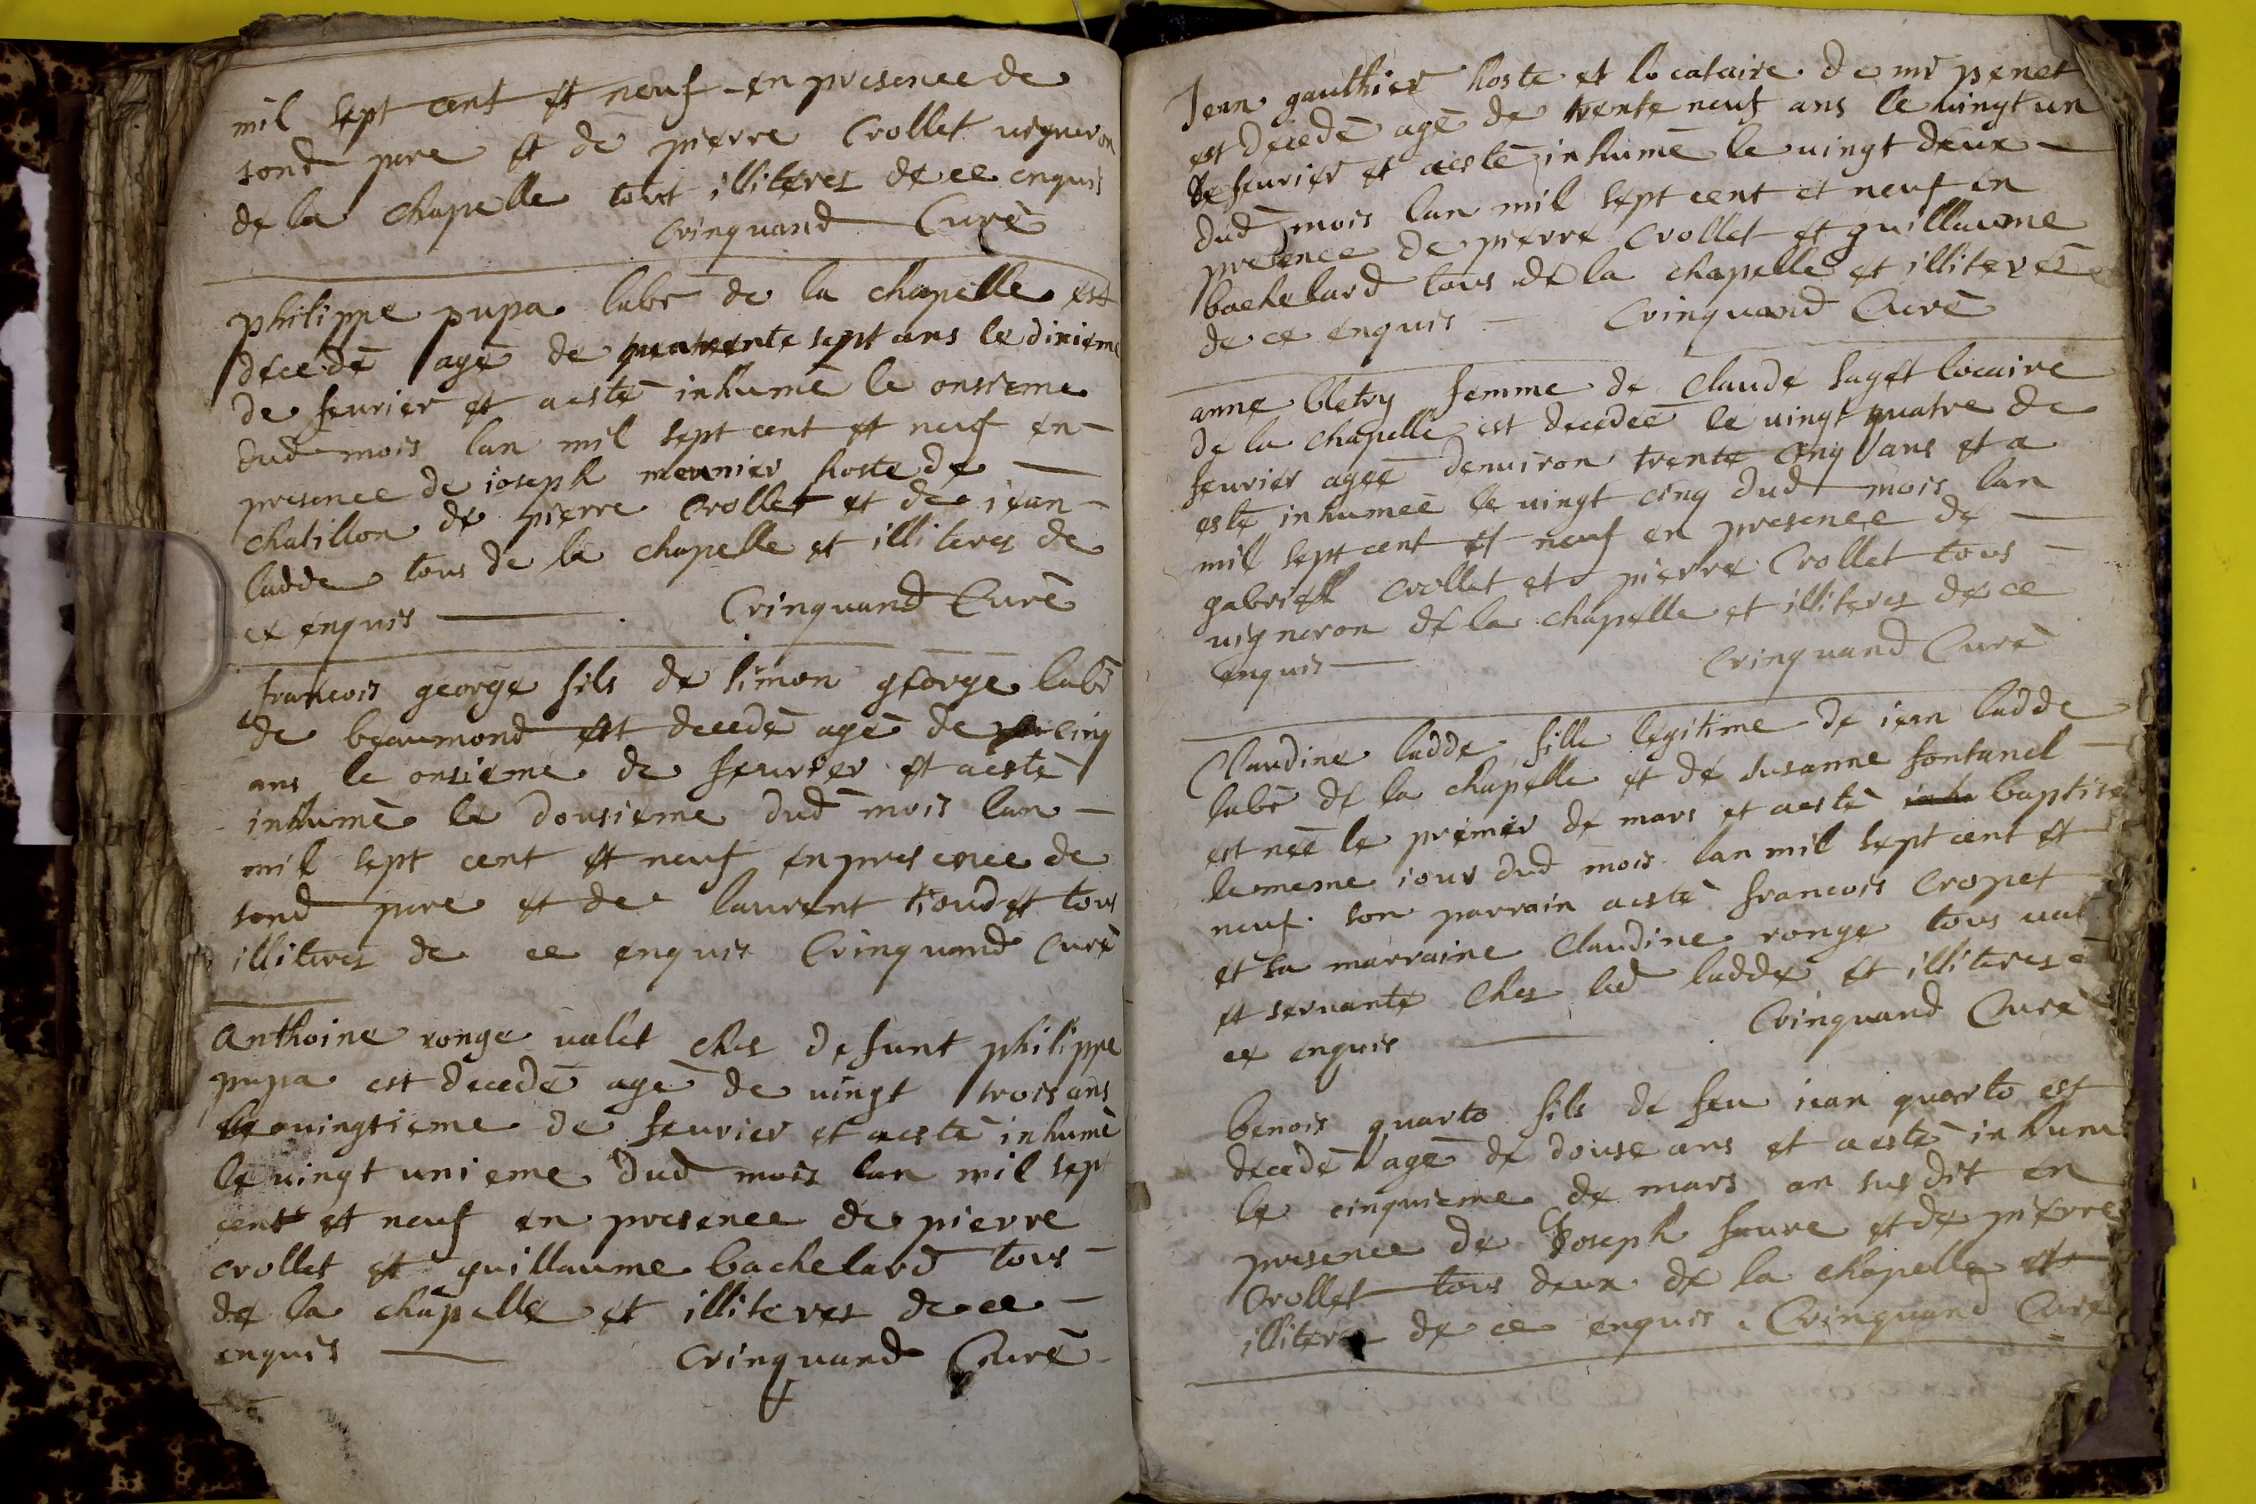 mil sept cent et neuf en presence de
sond pere et de pierre Crollet vigneron
de la chapelle tout illiteres de ce enquis
Crinquand Curé
philippe pupa labr de la chapelle est
decedé agé de quarente sept ans le dixieme
de feurier et a esté inhumé le onsieme
dud mois lan mil sept cent et neuf en
presence de ioseph meunier hoste de
chatillon de pierre Crollet et de iean
ladde tous de la chapelle et illiteres de
ce enquis Crinquand Curé
francois george fils de simon george labr
de beaumond est decedé agé de cinq
ans le onsieme de feurier et a esté
inhumé le dousieme dud mois lan
mil sept cent et neuf en presence de
sond pere et de laurent tous
illiteres de ce enquis Crinquand Curé
Anthoine ronge valet ches defunt philippe
pupa est decedé agé de vingt trois ans
le vingtieme de feurier et a esté inhumé
le vingt unieme dud mois lan mil sept
cent et neuf en presence de pierre
crollet et guillaume bachelard tous
de la chapelle et illiteres de ce
enquis Crinquand Curé
Jean gauthier hoste et locataire de mr penet
est decedé agé de trente neuf ans le vingt un
de feurier et a esté inhumé le vingt deux
dud mois lan mil sept cent et neuf en
presence de pierre Crollet et guillaume
bachelard tous de la chapelle et illiteres
de ce enquis Crinquand Curé
anne bletry femme de Claude saget locaire
de la chapelle est decedée le vingt quatre de
feurier agée denuiron trente cinq ans et a
esté inhumée le vingt cinq dud mois lan
mil sept cent et neuf en presence de
gabriell Crollet et pierre Crollet tous
vigneron de la chapelle et illiteres de ce
enquis Crinquand Curé
Claudine ladde fille legitime de iean ladde
labr de la chapelle et de susanne fontanel
est née le premier de mars et a esté baptisé
le meme iour dud mois lan mil sept cent et
neuf son parrain a esté francois Cropet
et sa marraine Claudine ronge tous val
et seruante ches lad ladde et illiteres
ce enquis Crinquand Curé
benois quarto fils de feu iean quarto est
decedé agé de douse ans et a esté inhum
le cinquieme de mars an sus dit en
presence de Joseph faure et de pierre
Crollet tous deux de la chapelle et
illiteres de ce enquis Crinquand Curé